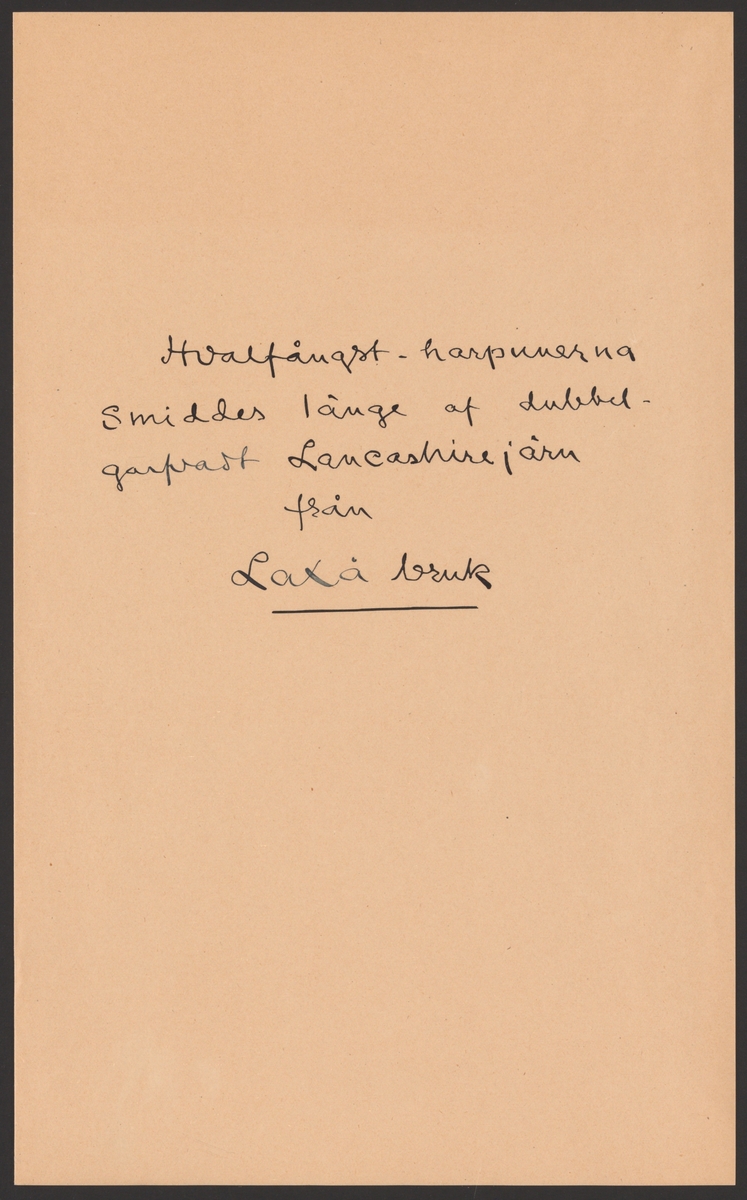 Hvalfångst-harpunerna
Smiddes länge af dubbel-
garfvadt Lancashirejärn
från
Laxå bruk